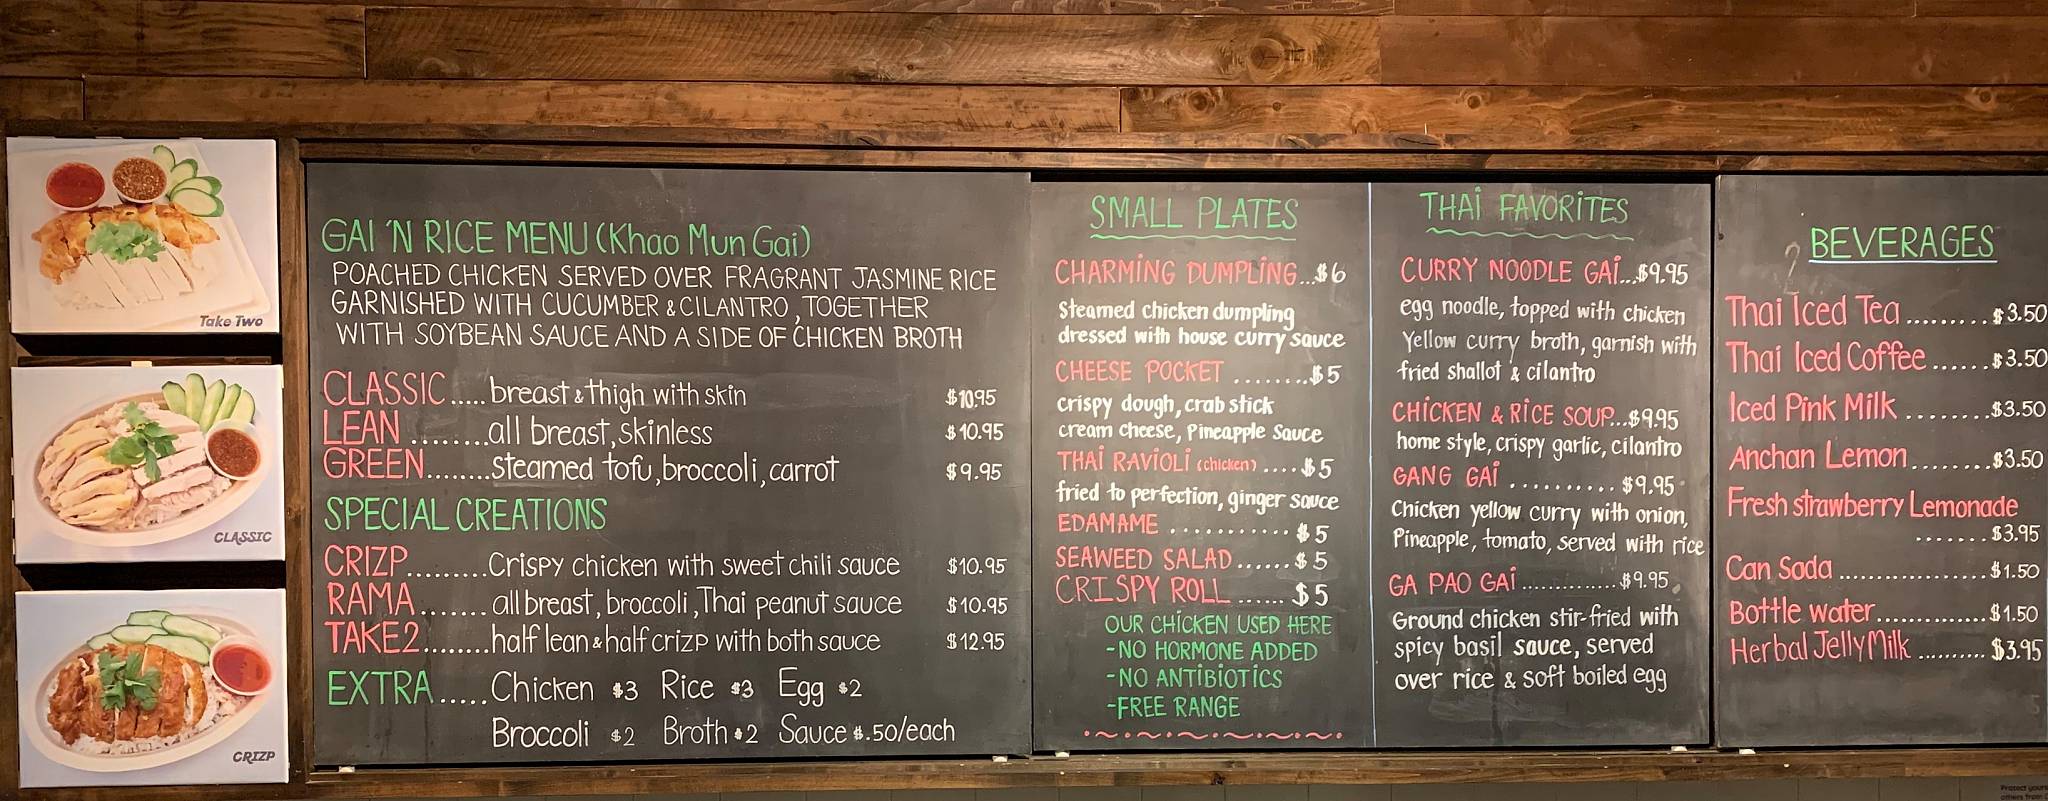 Take Two
CLASSIC
CRIZP
GAI 'N RICE MENU (Khao Mun Gai)
POACHED CHICKEN SERVED OVER FRAGRANT JASMINE RICE
GARNISHED WITH CUCUMBER & CILANTRO, TOGETHER
WITH SOYBEAN SAUCE AND A SIDE OF CHICKEN BROTH
CLASSIC.....breast & thigh with skin $10.95
LEAN ........all breast, skinless $10.95
GREEN........steamed tofu, broccoli, carrot $9.95
SPECIAL CREATIONS
CRIZP.........Crispy chicken with sweet chili sauce $10.95
RAMA........all breast, broccoli, Thai peanut sauce $10.95
TAKE2........half lean & half crizp with both sauce $12.95
EXTRA.....Chicken $3 Rice $3 Egg $2
Broccoli $2 Broth $2 Sauce $.50/each
SMALL PLATES
CHARMING DUMPLING...$6
Steamed chicken dumpling
dressed with house curry sauce
CHEESE POCKET ........$5
crispy dough, crab stick
cream cheese, Pineapple Sauce
THAI RAVIOLI (chicken) ....$5
fried to perfection, ginger sauce
EDAMAME ...........$5
SEAWEED SALAD......$5
CRISPY ROLL ......$5
OUR CHICKEN USED HERE
-NO HORMONE ADDED
-NO ANTIBIOTICS
-FREE RANGE
THAI FAVORITES
CURRY NOODLE GAI...$9.95
egg noodle, topped with chicken
Yellow curry broth, garnish with
fried shallot & cilantro
CHICKEN & RICE SOUP...$9.95
home style, crispy garlic, cilantro
GANG GAI ..........$9.95
Chicken yellow curry with onion,
Pineapple, tomato, served with rice
GA PAO GAI.............$9.95
Ground chicken stir-fried with
spicy basil sauce, served
over rice & soft boiled egg
BEVERAGES
Thai Iced Tea .........$3.50
Thai Iced Coffee ......$3.50
Iced Pink Milk ........$3.50
Anchan Lemon........$3.50
Fresh strawberry Lemonade
.......$3.95
Can Soda ..................$1.50
Bottle water.............$1.50
Herbal Jelly Milk ..........$3.95